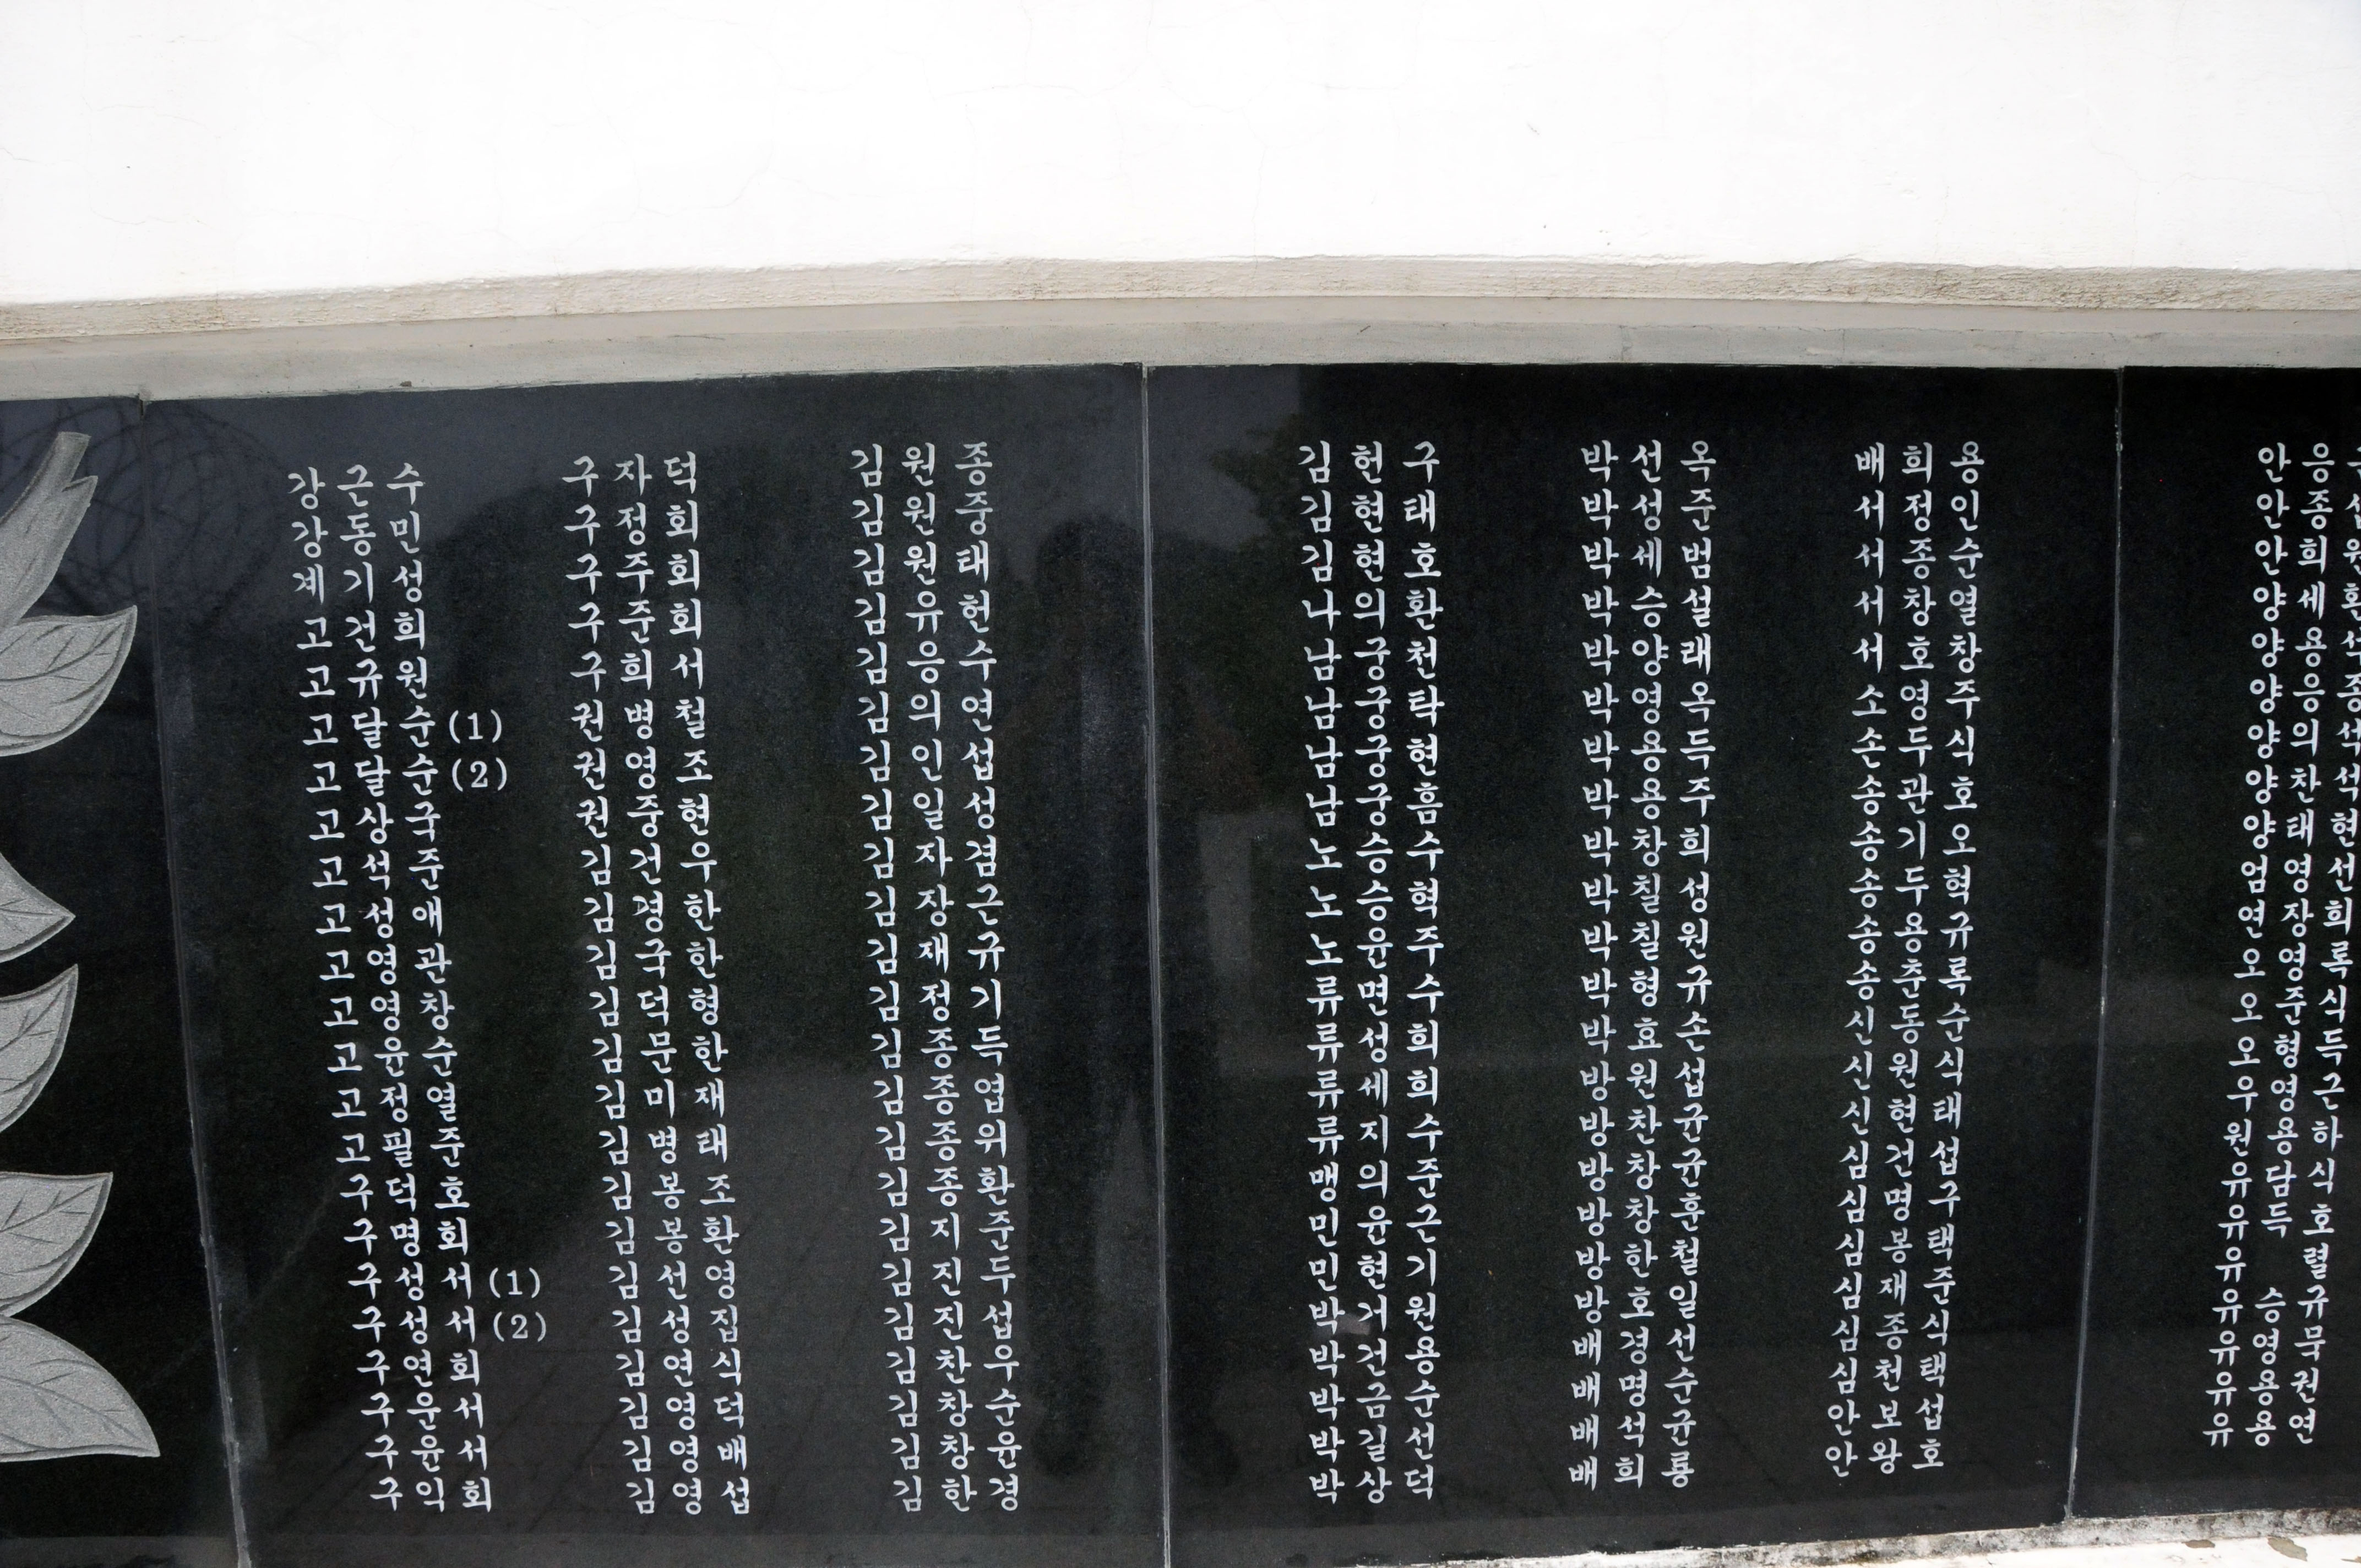 강근수
강동민
계기성
고건희
고규원
고달순 (1)
고달순 (2)
고상국
고석준
고성애
고영관
고영창
고윤수
고정열
고필준
구덕호
구명회
구성서 (1)
구성서 (2)
구연회
구운서
구윤서
구익회
구자덕
구정회
구주회
구준회
구희서
권병철
권영조
권중현
김건우
김경한
김국한
김덕형
김문한
김미재
김병태
김봉조
김봉환
김선영
김성집
김연식
김영덕
김영배
김영섭
김원종
김원중
김원태
김유헌
김응수
김의연
김인섭
김일성
김자겸
김장근
김재규
김정기
김종득
김종엽
김종위
김종환
김지준
김진두
김진섭
김찬우
김창순
김창윤
김한경
김헌구
김현태
김현호
나의환
남궁천
남궁탁
남궁현
남궁흠
노승수
노승혁
노윤주
류면수
류성희
류세희
류지수
맹의준
민윤근
민현기
박거원
박건용
박금순
박길선
박상덕
박선옥
박성준
박세범
박승설
박양래
박영옥
박용득
박용주
박창희
박칠성
박칠원
박형규
박효손
방원섭
방찬균
방창균
방창훈
방한철
방호일
배경선
배명순
배석균
배희룡
배희용
서정인
서종순
서창열
서호창
소영주
손두식
송관호
송기오
송두혁
송용규
송춘록
신동순
신원식
신현태
심건섭
심명구
심봉택
심재준
심종식
심천택
안보섭
안왕호
안응
안종섭
안희원
양세환
양용석
양응종
양의석
양찬석
양태현
엄영선
연장희
오영록
오준식
오형득
우영근
원용하
유담식
유득호
유 렬
유승규
유영묵
유용권
유용연